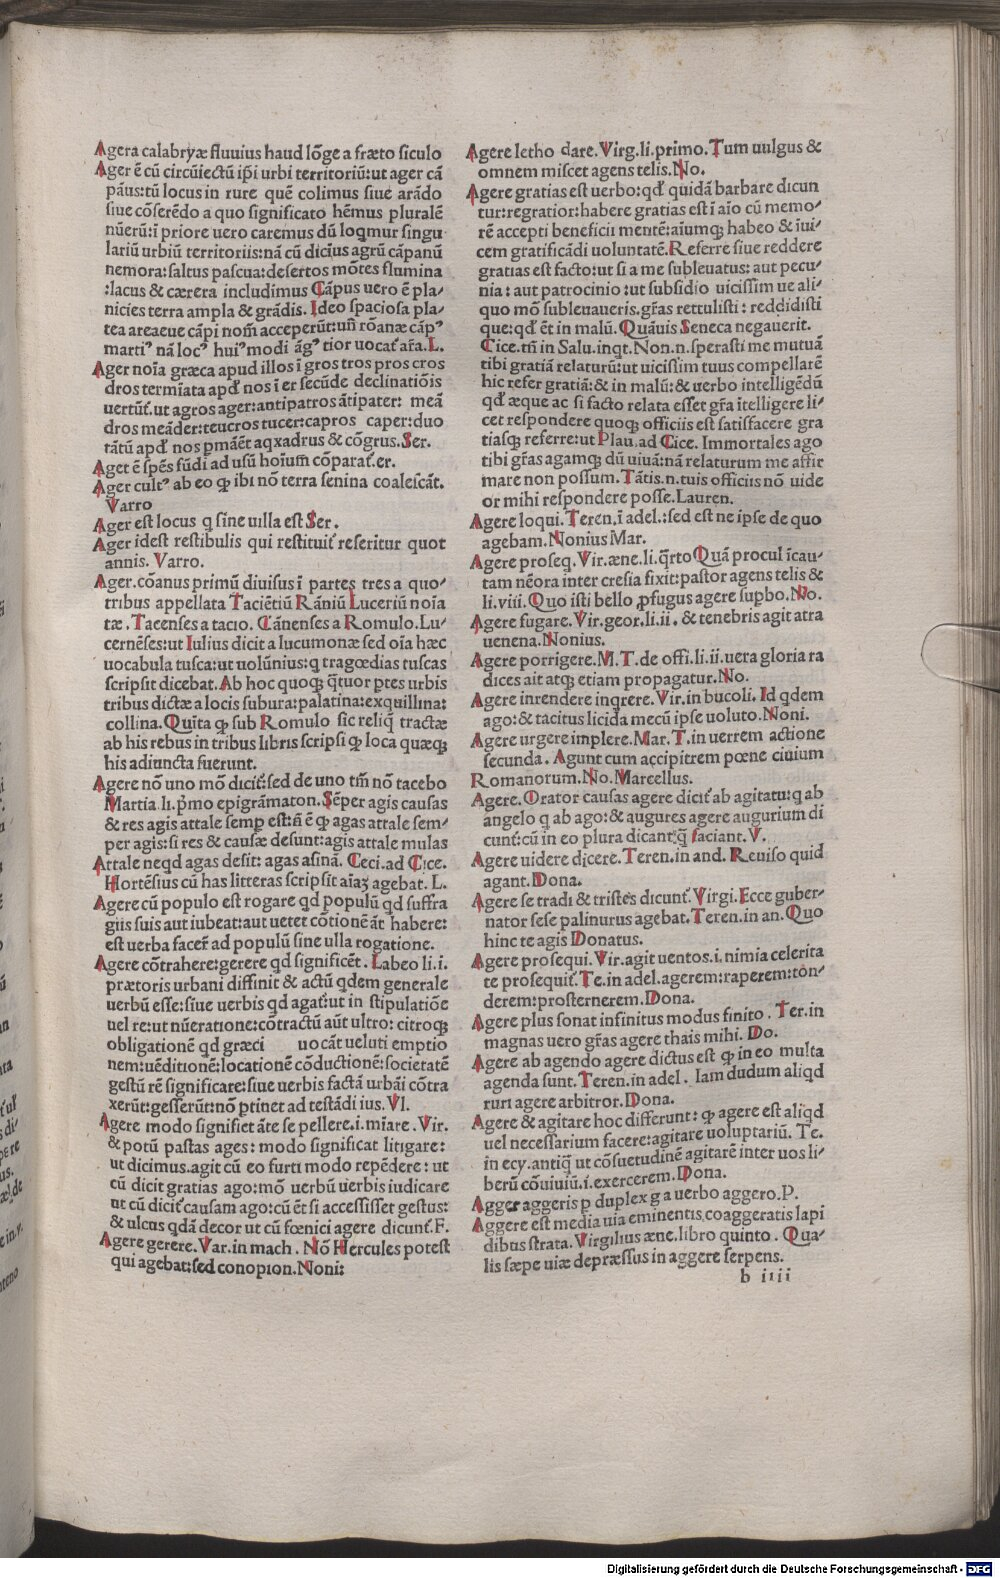 Agera calabryæ fluuius haud lõge a fræto siculo
Ager ē cũ circũiectũ ip̃i urbi territoriũ:ut ager cã
pãus:tũ locus in rure quē colimus siue arãdo
siue cõserēdo a quo significato hēmus pluralē
nũerũ:ī priore uero caremus dũ loq̃mur singu
lariũ urbiũ territoriis:nã cũ dicius agrũ cãpanũ
nemora:saltus pascua:desertos mõtes flumina
:lacus & cærera includimus Cãpus uero ē pla⸗
nicies terra ampla & grãdis. Ideo spaciosa pla⸗
tea areaeue cãpi nom̃ acceperũt:uñ rõanæ cãpꝰ
martiꝰ nã locꝰ huiꝰmodi ãgꝰtior uocat̃ ar̃a.L.
Ager noĩa græca apud illos ī gros tros pros cros
dros termĩata apd̃ nos ī er secũde declinatiõis
uertũt̃.ut agros ager:antipatros ãtipater: meã
dros meãder:teucros tucer:capros caper:duo
tãtũ apd̃ nos p̱mãēt aqxadrus & cõgrus.Ser.
Aget ē sp̃es fũdi ad usũ hoĩum̃ cõparat̃.er.
Ager cultꝰ ab eo ꝙ ibi nõ terra senina coalescãt.
Varro
Ager est locus q̃ sine uilla est Ser.
Ager idest restibulis qui restituit̃ reseritur quot
annis. Varro.
Ager.cõanus primũ diuisus ī partes tres a quo⸗
tribus appellata Taciētiũ Rãniũ Luceriũ noĩa
tæ. Tacenses a tacio. Cãnenses a Romulo.Lu⸗
cernēses:ut Iulius dicit a lucumonæ sed oĩa hæc
uocabula tusca:ut uolũnius:q̃ tragœdias tuscas
scripsit dicebat.Ab hoc quoqꝫ q̃tuor p̱tes urbis
tribus dictæ a locis subura:palatina:exquillina:
collina.Quita ꝙ sub Romulo sic reliq̃ tractæ
ab his rebus in tribus libris scripsi ꝙ loca quæqꝫ
his adiuncta fuerunt.
Agere nõ uno mõ dicit̃:sed de uno tm̃ nõ tacebo
Martia.li.p̃mo epigrãmaton.Sēper agis causas
& res agis attale semp̱ est:ñ ē ꝙ agas attale sem⸗
per agis:si res & causæ desunt:agis attale mulas
Attale neqd agas desit: agas asinã. Ceci.ad Cice.
Hortēsius cũ has litteras scripsit aĩaꝫ agebat. L.
Agere cũ populo est rogare qd populũ qd suffra
giis suis aut iubeat:aut uetet cõtionē ãt habere:
est uerba facer̃ ad populũ sine ulla rogatione.
Agere cõtrahere:gerere qd significēt. Labeo li.i.
prætoris urbani diffinit & actũ qdem generale
uerbũ esse:siue uerbis qd agat̃:ut in stipulatiõe
uel re:ut nũeratione:cõtractũ aũt ultro: citroqꝫ
obligationē qd græci uocãt ueluti emptio
nem:uēditionē:locationē cõductionē:societatē
gestũ rē significare:siue uerbis factã urbãi cõtra
xerũt:gesserũt:nõ p̱tinet ad testãdi ius.Vl.
Agere modo signifiet ãte se pellere.i.miare. Vir.
& potũ pastas ages: modo significat litigare:
ut dicimus.agit cũ eo furti modo repēdere: ut
cũ dicit gratias ago:mõ uerbũ uerbis iudicare
ut cũ dicit̃ causam ago:cũ ēt si accessisset gestus:
& ulcus qdã decor ut cũ fœnici agere dicunt̃.F.
Agere gerere. Var.in mach. Nõ Hercules potest
qui agebat:sed conopion.Noni:
Agere letho dare.Virg.li.primo.Tum uulgus &
omnem miscet agens telis.No.
Agere gratias est uerbo:qd̃ quidã barbare dicun
tur:regratior:habere gratias est ī aĩo cũ memo⸗
rē accepti beneficii mentē:aĩumqꝫ habeo & ĩui⸗
cem gratificãdi uoluntatē.Referre siue reddere
gratias est facto:ut si a me subleuatus: aut pecu⸗
nia: aut patrocinio:ut subsidio uicissim ue ali⸗
quo mõ subleuaueris.gr̃as rettulisti: reddidisti
que:qd̃ ēt in malũ. Quãuis Seneca negauerit.
Cice.tñ in Salu.inqt. Non.n.sperasti me mutuã
tibi gratiã relaturũ:ut uicissim tuus compellarē
hic refer gratiã:& in malũ:& uerbo intelligēdũ
qd̃ æque ac si facto relata esset gr̃a ĩtelligere li⸗
cet respondere quoqꝫ officiis est satisfacere gra
tiasqꝫ referre:ut Plau.ad Cice. Immortales ago
tibi gr̃as agamqꝫ dũ uiuã:nã relaturum me affir
mare non possum. Tãtis.n.tuis officiis nõ uide
or mihi respondere posse.Lauren.
Agere loqui. Teren.ī adel.:sed est ne ipse de quo
agebam.Nonius Mar.
Agere proseq. Vir.æne.li.q̃rto Quã procul ĩcau⸗
tam nēora inter cresia fixit:pastor agens telis &
li.viii.Quo isti bello ꝓfugus agere sup̱bo.No.
Agere fugare.Vir.geor.li.ii.& tenebris agit atra
uenena.Nonius.
Agere porrigere.M.T.de offi.li.ii.uera gloria ra
dices ait atqꝫ etiam propagatur.No.
Agere inrendere inqrere.Vir.in bucoli.Id qdem
ago:& tacitus licida mecũ ipse uoluto.Noni.
Agere urgere implere.Mar.T.in uerrem actione
secunda. Agunt eum accipitrem pœne ciuium
Romanotum.No.Marcellus.
Agere. Orator causas agere dicit̃ ab agitatu:q̃ ab
angelo q̃ ab ago:& augures agere augurium di
cunt:cũ in eo plura dicant:q̃ faciant.V.
Agere uidere dicere. Teren.in and. Reuiso quid
agant.Dona.
Agere se tradi & tristes dicunt̃. Virgi.Ecce guber⸗
nator sese palinurus agebat.Teren.in an.Quo
hinc te agis Donatus.
Agere prosequi.Vir.agit uentos.i.nimia celerita
te prosequit̃.Te.in adel.agerem:raperem:ton⸗
derem:prosternerem.Dona.
Agere plus sonat infinitus modus finito. Ter.in
magnas uero gr̃as agere thais mihi. Do.
Agere ab agendo agere dictus est ꝙ in eo multa
agenda sunt.Teren.in adel. Iam dudum aliqd
ruri agere arbitror.Dona.
Agere & agitare hoc differunt: ꝙ agere est aliqd
uel necessarium facere:agitare uoluptariũ. Te.
in ecy.antiq̃ ut cõsuetudinē agitarē inter uos li⸗
berũ cõuiuiũ.i.exercerem.Dona.
Agger aggeris p̱ duplex g a uerbo aggero.P.
Aggere est media uia eminentis coaggeratis lapi
dibus strata.Virgilius æne.libro quinto. Qua⸗
lis sæpe uiæ depræssus in aggere serpens.
b iiii
Digitalisierung gefördert durch die Deutsche Forschungsgemeinschaft - DFG